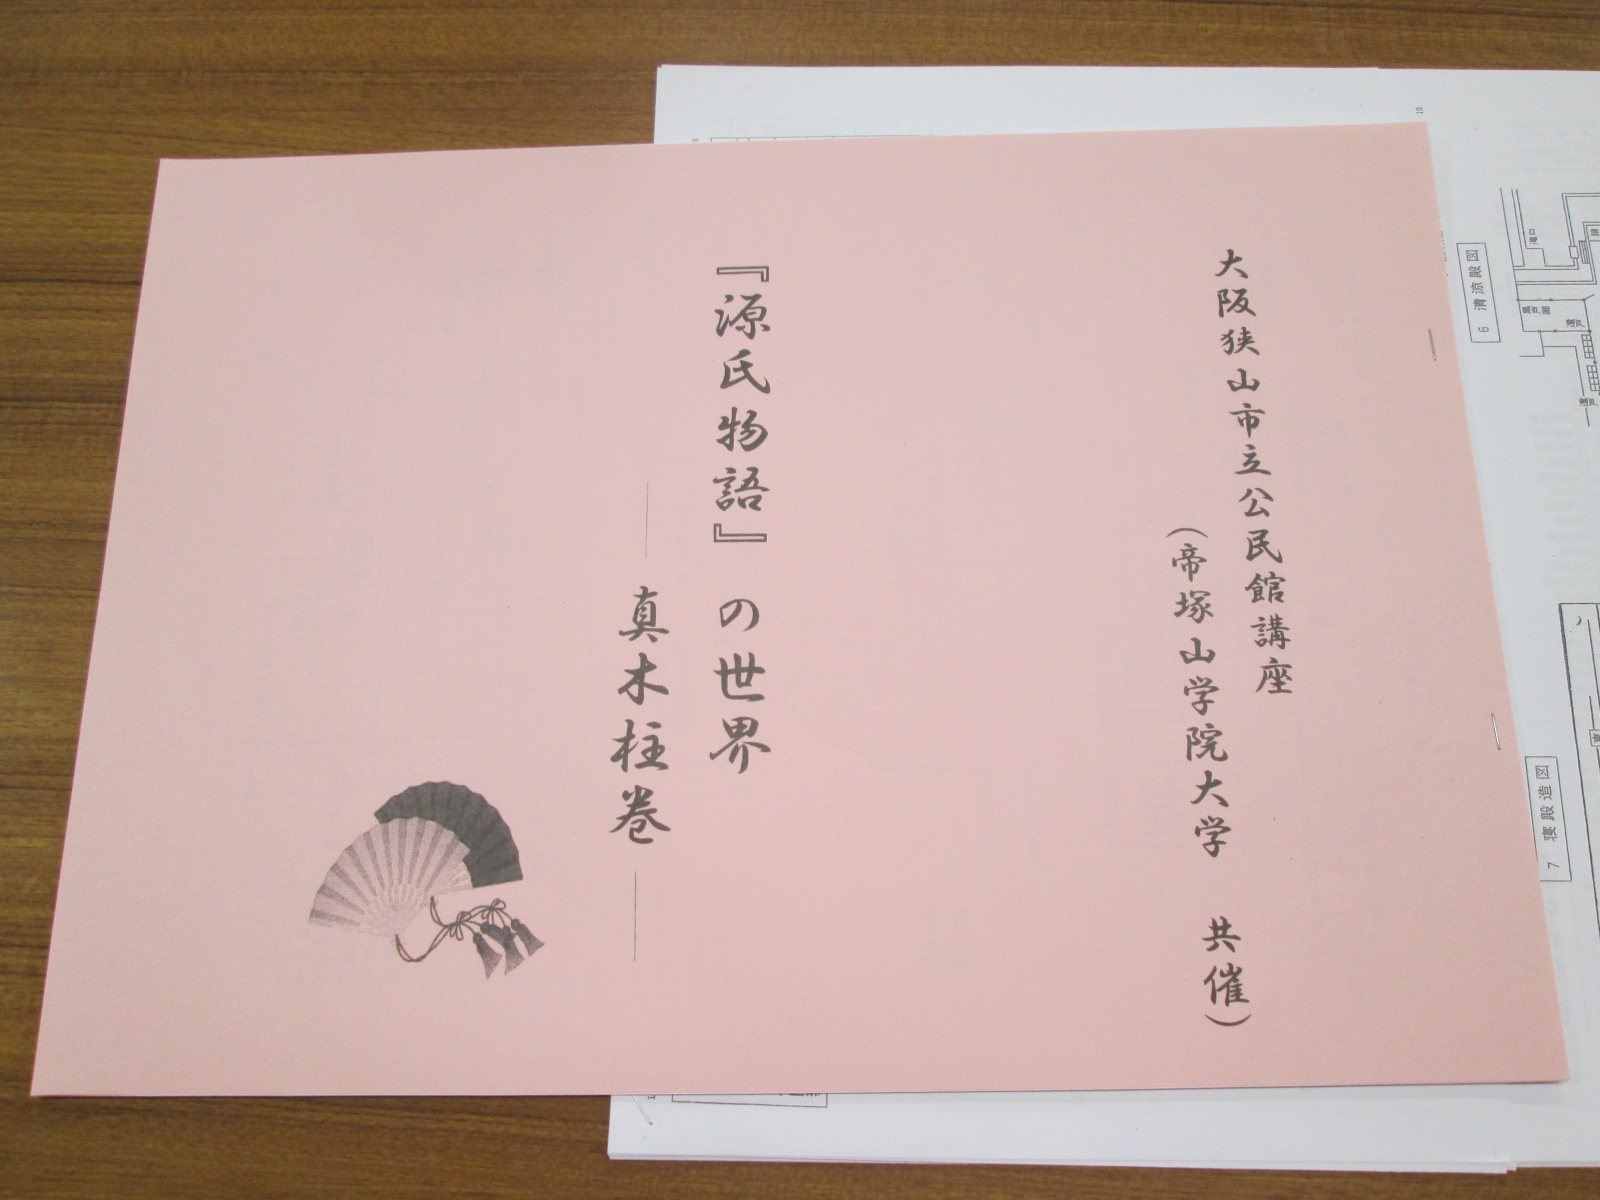 大阪狭山市立公民館講座
(帝塚山学院大学 共催)
『源氏物語』の世界
真木柱巻
10
6 清涼殿図
滝口
黒戸廊
7 寝殿造図